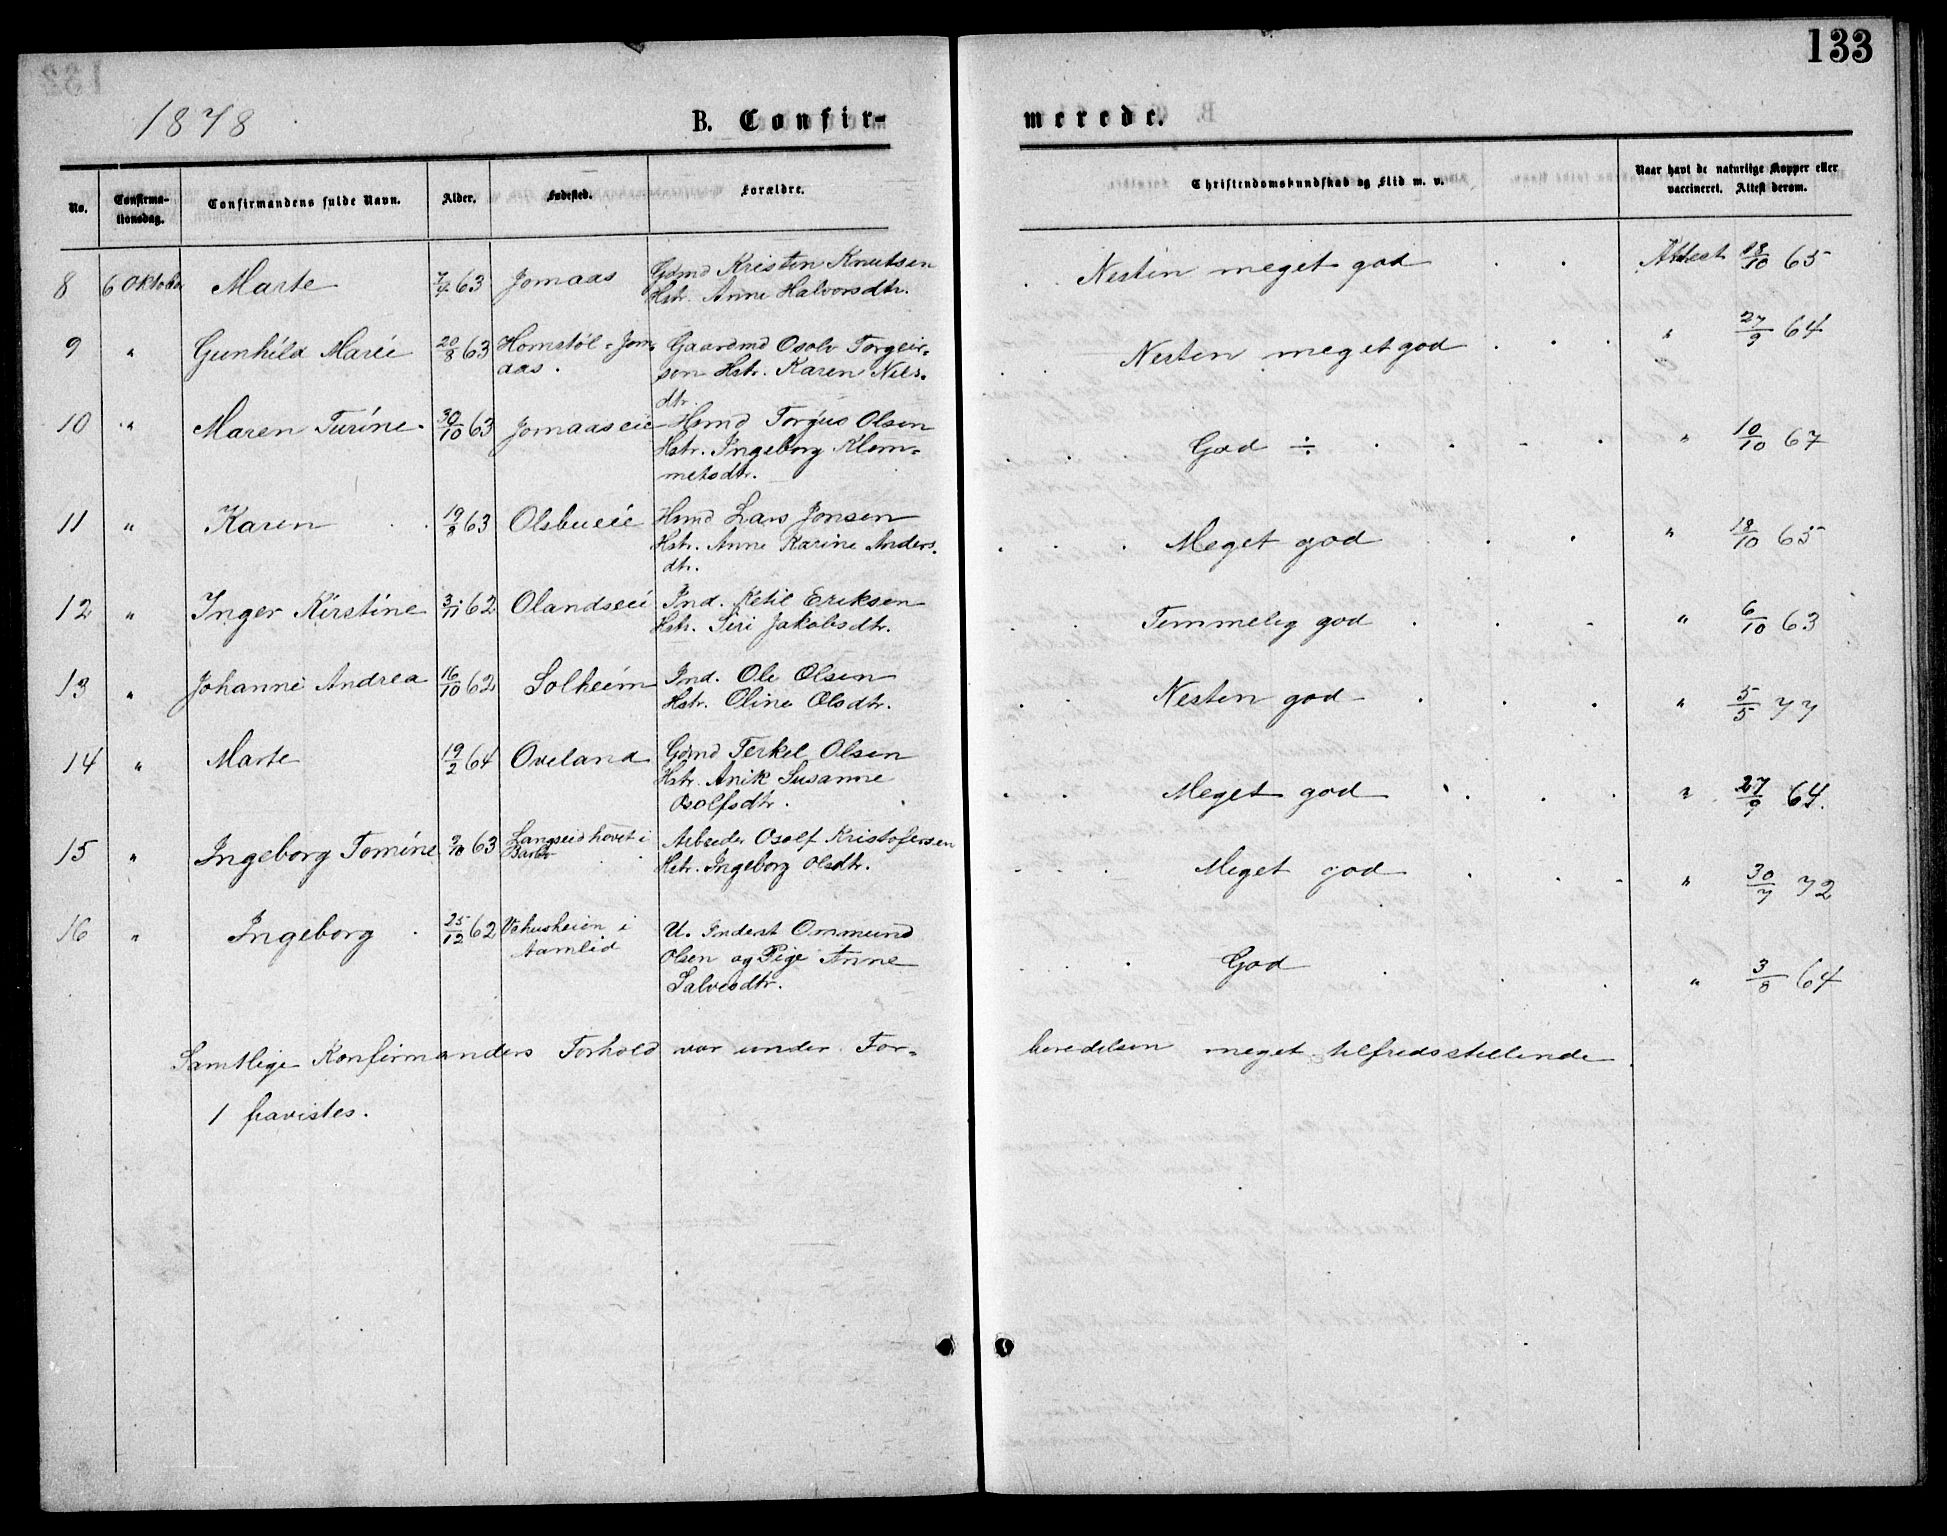 133
1878 B. Confir- merede.
No. Confirma-tionsdag. Confirmandens fulde Navn. Alder. Fødested. Forældre. Christendomskundskab og Flid m. v. Naar havt de naturlige Kopper eller vaccineret. Attest derom.
8 6 Oktober Marte 63 Jomaas Gdmd Kristen Knutsen Nesten meget god Attest 18/10 65
Hstr. Anne Halvorsdtr.
9 " Gunhild Marie 20/8 63 Homstøl - Jom- Gaardmd Osolv Torgeir- Nesten meget god " 27/9 64
aas. sen Hstr. Karen Nils-
dtr.
10 " Maren Turine 30/10 63 Jomaaseie Hsmd Torjus Olsen God ÷ " 10/10 67
Hstr. Ingeborg Klem-
metsdtr.
11 " Karen 19/8 63 Olsbueie Hsmd Lars Jonsen Meget god " 18/10 65
Hstr. Anne Karine Anders-
dtr.
12 " Inger Kirstine 3/11 62 Olandseie Ind. Ketil Eriksen Temmelig god " 6/10 63
Hstr. Siri Jakobsdtr.
13 " Johanne Andrea 16/10 62 Solheim Ind. Ole Olsen Nesten god " 5/5 77
Hstr. Oline Olsdtr.
14 " Marte 19/2 64 Oveland Gdmd Terkel Olsen Meget god " 27/9 64.
Hstr. Anik Susanne
Osolfsdtr.
15 " Ingeborg Tomine 9/10 63 Langseidhovet i Arbeider Osolf Kristofersen Meget god " 30/7 72
Hstr. Ingeborg Olsdtr.
16 " Ingeborg 25/12 62 i U. Inderst Ommund God " 3/8 64
Aamlid Olsen og Pige Anne
Salvesdtr.
Samtlige Konfirmanders Forhold var under For- beredelsen meget tilfredsstillende
1 fravistes.